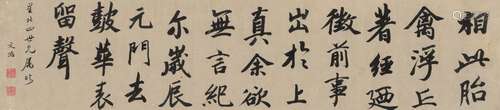 相此胎
禽浮丘
著經廼
徵前事
出於上
真余欲
無言紀
尔歲辰
元門去
鼓華表
留聲
世兄屬
文治